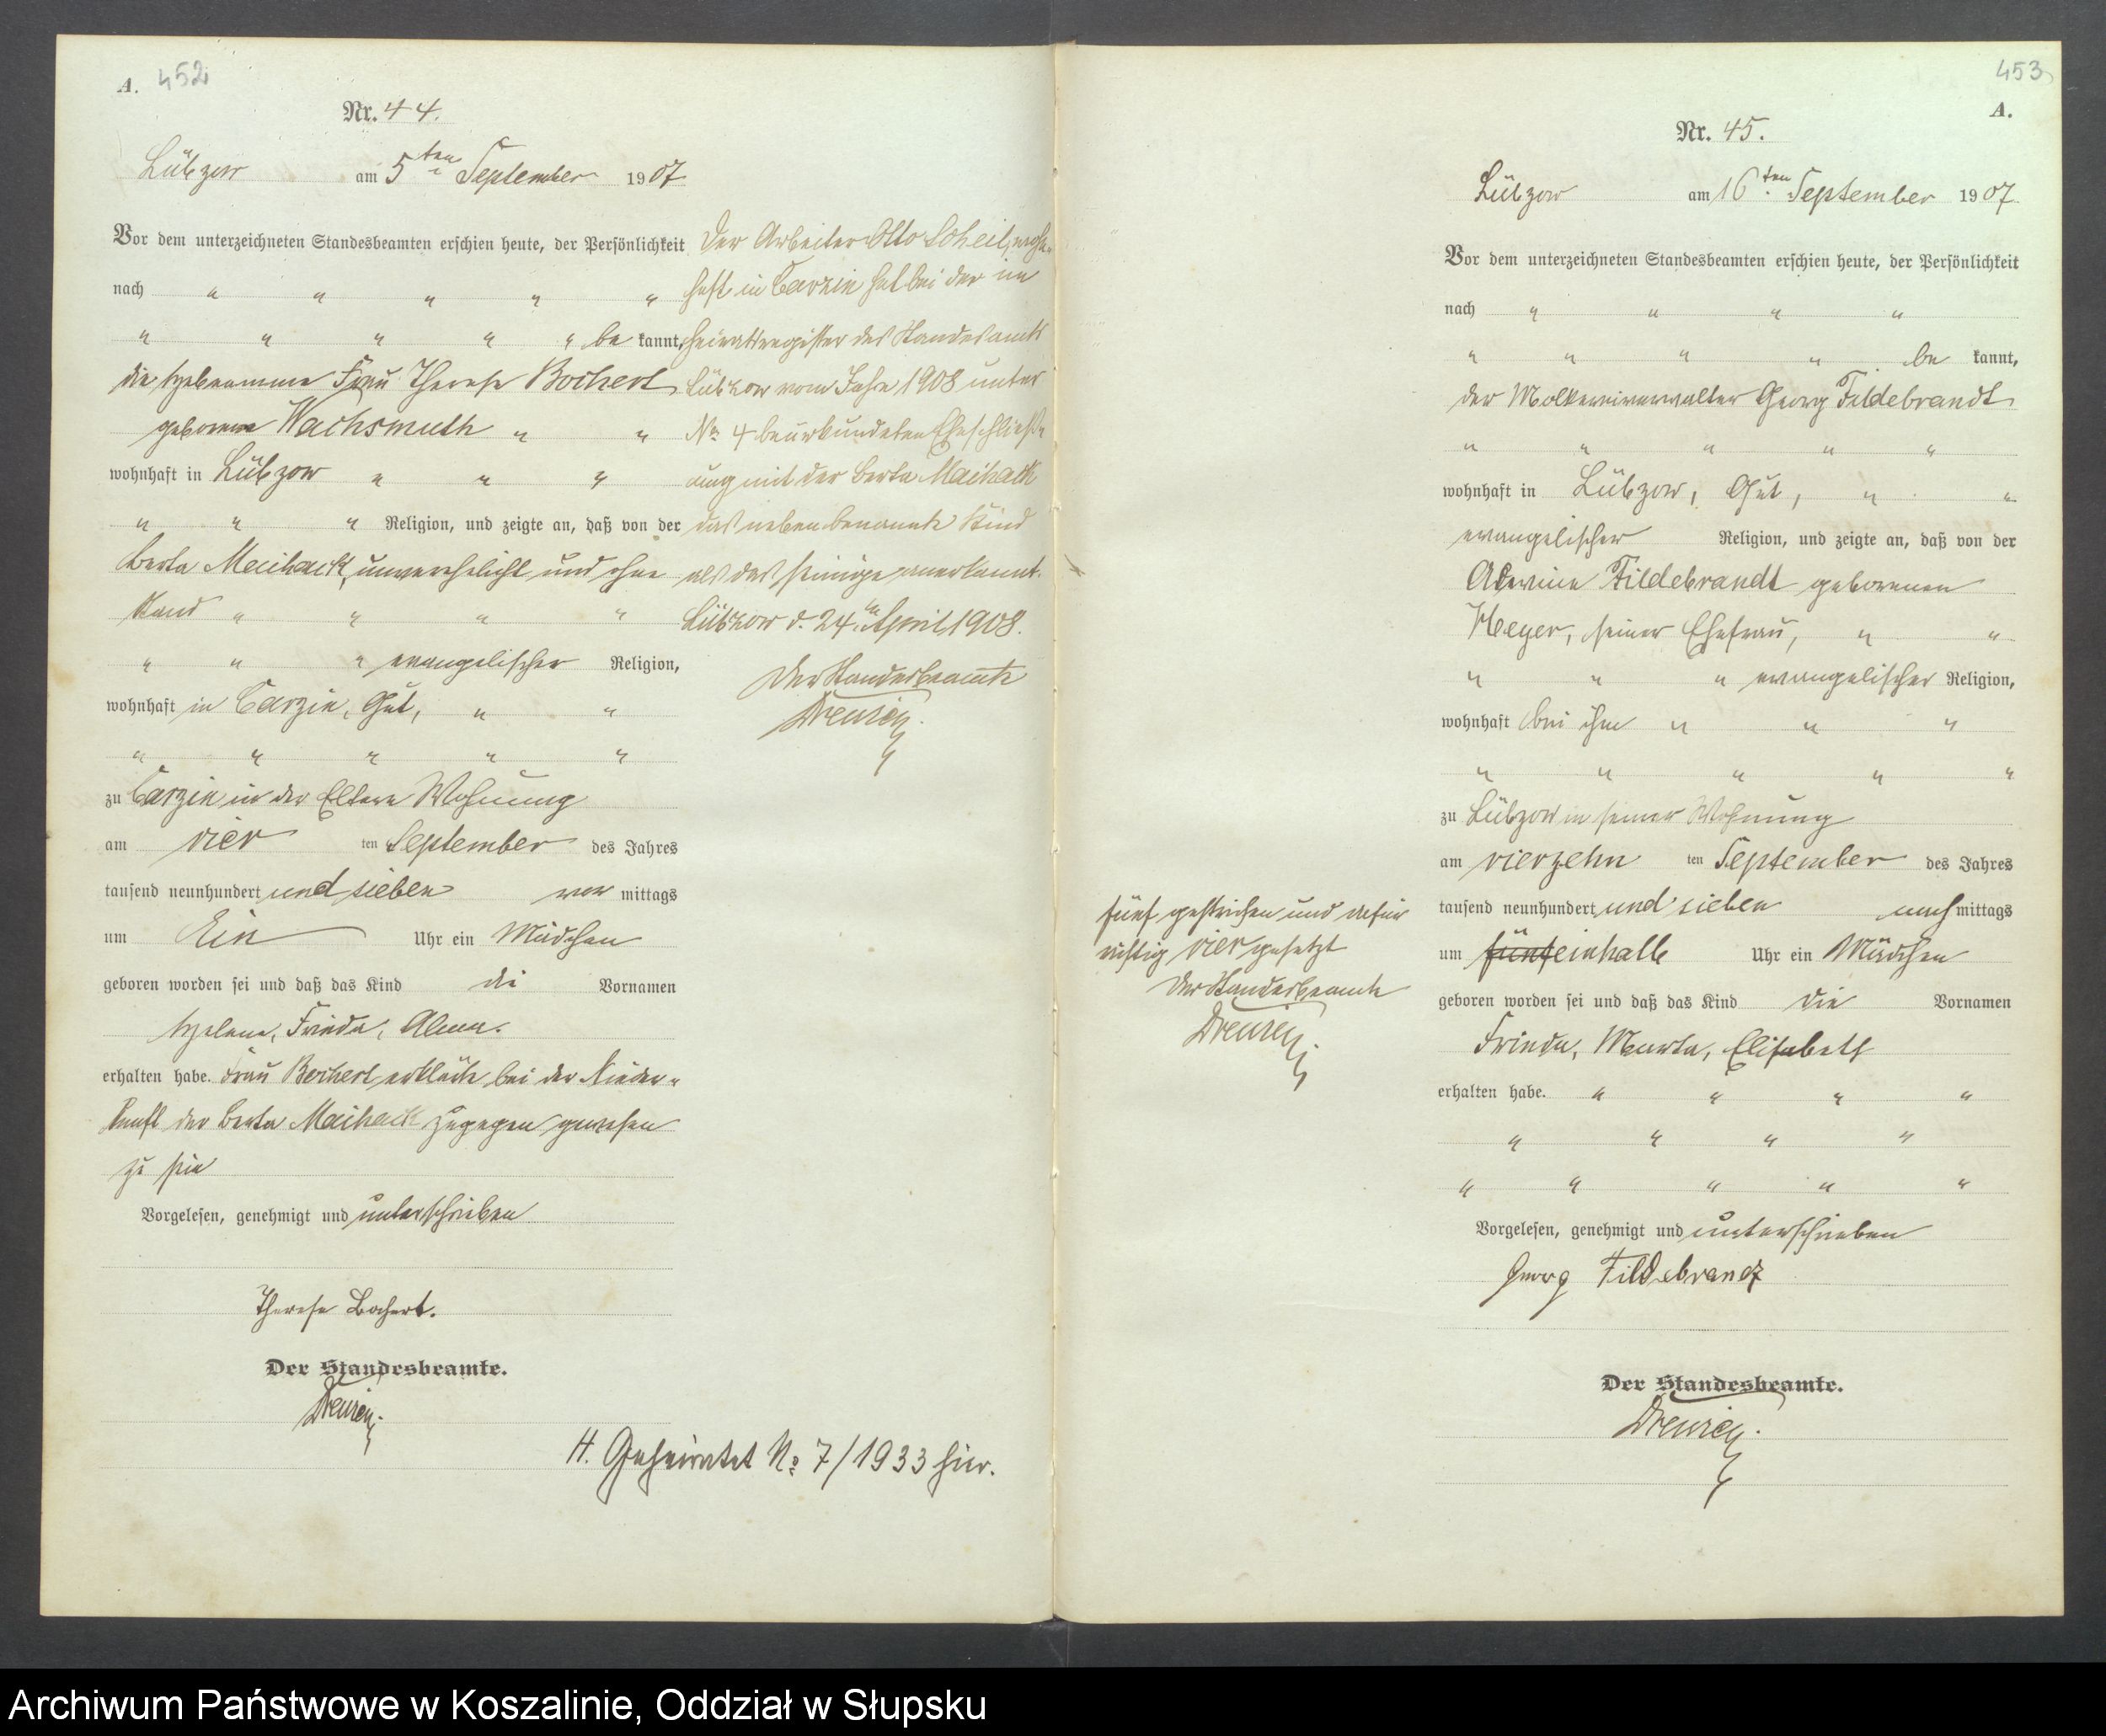 A. 452
Nr. 44.
Lübzow am 5ten September 1907
Vor dem unterzeichneten Standesbeamten erschien heute, der Persönlichkeit
nach " " " " "
" " " " " be kannt,
die Hebeamme Frau Therese Bochert
geborene Wachsmuth " "
wohnhaft in Lübzow " " "
" " " Religion, und zeigte an, daß von der
Berta Maihack, unverehelicht und ohne
Stand " " " "
" " " evangelischer Religion,
wohnhaft in Carzin, Gut, " "
" " " " "
zu Carzin in der Eltern Wohnung
am vier ten September des Jahres
tausend neunhundert und sieben vor mittags
um Ein Uhr ein Mädchen
geboren worden sei und daß das Kind die Vornamen
Helene, Frieda,
erhalten habe. Frau Bochert erklärte bei der Nieder-
kunft der Berta Maihack zugegen gewesen
zu sein
Vorgelesen, genehmigt und unterschrieben
Therese Bochert.
Der Standesbeamte.
Der Arbeiter Otto Scheil, wohn-
haft in Carzin hat bei der im
Heiratsregister des Standesamts
Lübzow vom Jahre 1908 unter
No 4 beurkundeten Eheschließ-
ung mit der Berta Maihack
das nebenbenannte Kind
als das seinige anerkannt.
Lübzow d. 24ten April 1908.
Der Standesbeamte
H. Geheiratet No 7/1933 hier.
453
A.
Nr. 45.
Lübzow am 16ten September 1907
Vor dem unterzeichneten Standesbeamten erschien heute, der Persönlichkeit
nach " " " "
" " " " be kannt,
der Molkereiverwalter Georg Fildebrandt
" " " " "
wohnhaft in Lübzow, Gut, " "
evangelischer Religion, und zeigte an, daß von der
Fildebrandt geborenen
Heyer, seiner Ehefrau, " "
" " " evangelischer Religion,
wohnhaft bei ihm " " "
" " " " "
zu Lübzow in seiner Wohnung
am vierzehn ten September des Jahres
tausend neunhundert und sieben nach mittags
um fünfeinhalb Uhr ein Mädchen
geboren worden sei und daß das Kind die Vornamen
Frieda, Marta, Elisabeth
erhalten habe. " " " "
" " " "
" " " " "
Vorgelesen, genehmigt und unterschrieben
Georg Fildebrandt
Der Standesbeamte.
fünf gestrichen und dafür
richtig vier gesetzt
Der Standesbeamte
Archiwum Państwowe w Koszalinie, Oddział w Słupsku